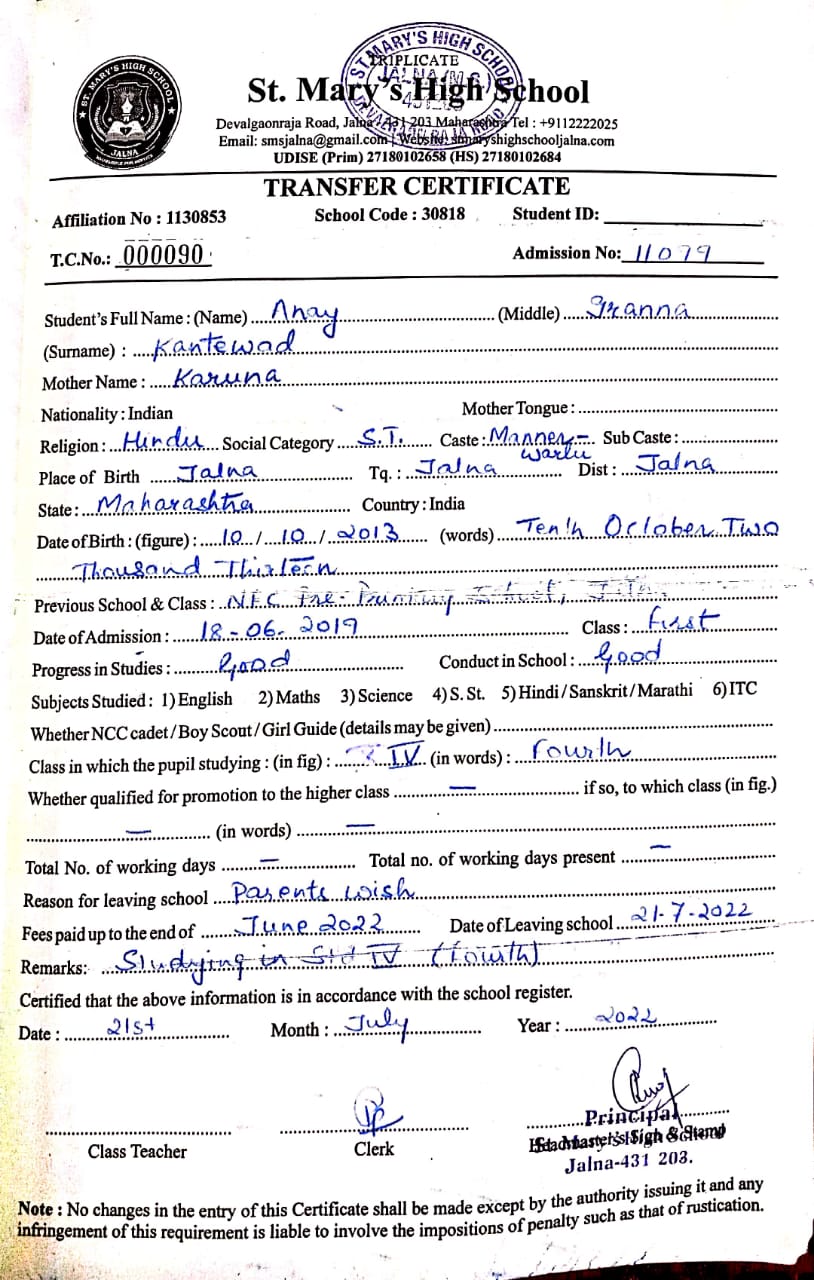 ST. MARY'S HIGH SCHOOL
JALNA
ST. MARY'S HIGH SCHOOL
TRIPLICATE
JALNA (M.S.)
DEVLGAONRAJA ROAD
St. Mary's High School
Devalgaonraja Road, Jalna 431 203 Maharashtra Tel : +9112222025
Email: smsjalna@gmail.com | Website: stmaryshighschooljalna.com
UDISE (Prim) 27180102658 (HS) 27180102684
TRANSFER CERTIFICATE
Affiliation No : 1130853 School Code : 30818 Student ID:
T.C.No.: 000090 Admission No: 11079
Student's Full Name : (Name) Anay (Middle) Iranna
(Surname) : Kantewad
Mother Name : Karuna
Nationality : Indian Mother Tongue :
Religion : Hindu Social Category S.T. Caste : Manner- Sub Caste :
warlu
Place of Birth Jalna Tq. : Jalna Dist : Jalna
State : Maharashtra Country : India
Date of Birth : (figure) : 10 / 10 / 2013 (words) Tenth October Two
Thousand Thirteen
Previous School & Class : N.F.C Pre-
Date of Admission : 18-06-2019 Class : First
Progress in Studies : Good Conduct in School : Good
Subjects Studied : 1) English 2) Maths 3) Science 4) S. St. 5) Hindi / Sanskrit / Marathi 6) ITC
Whether NCC cadet / Boy Scout / Girl Guide (details may be given)
Class in which the pupil studying : (in fig) : IV (in words) : Fourth
Whether qualified for promotion to the higher class — if so, to which class (in fig.)
— (in words) —
Total No. of working days — Total no. of working days present —
Reason for leaving school Parents wish
Fees paid up to the end of June 2022 Date of Leaving school 21-7-2022
Remarks: Studying in Std IV (Fourth)
Certified that the above information is in accordance with the school register.
Date : 21st Month : July Year : 2022
Principal
Class Teacher Clerk
Jalna-431 203.
Note : No changes in the entry of this Certificate shall be made except by the authority issuing it and any
infringement of this requirement is liable to involve the impositions of penalty such as that of rustication.